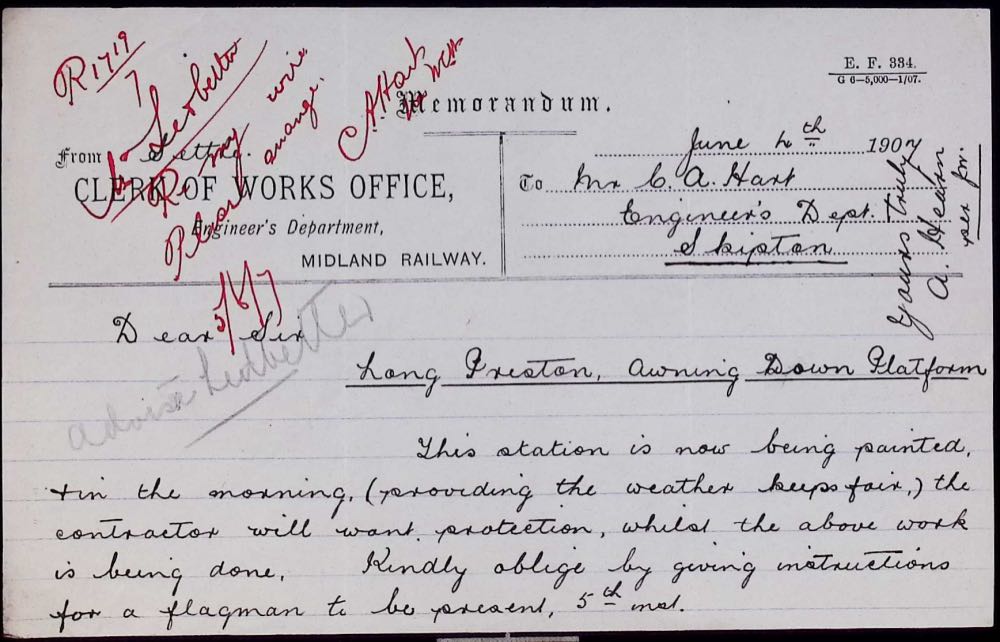 R1719
7
Mr Ledbetter
R. my wire
Please arrange.
CAHart
WCH
5/6/7
E. F. 334.
G 6–5,000—1/07.
Memorandum.
June 4th 1907
From Settle.
CLERK OF WORKS OFFICE,
Engineer's Department,
MIDLAND RAILWAY.
To Mr C. A. Hart
Engineer's Dept.
Skipton
Dear Sir
advise Ledbetter
Long Preston, Awning Down Platform
This station is now being painted,
+ in the morning, (providing the weather keeps fair,) the
contractor will want protection, whilst the above work
is being done. Kindly oblige by giving instructions
for a flagman to be present, 5th inst.
Yours truly
A. Heaton
per pr.